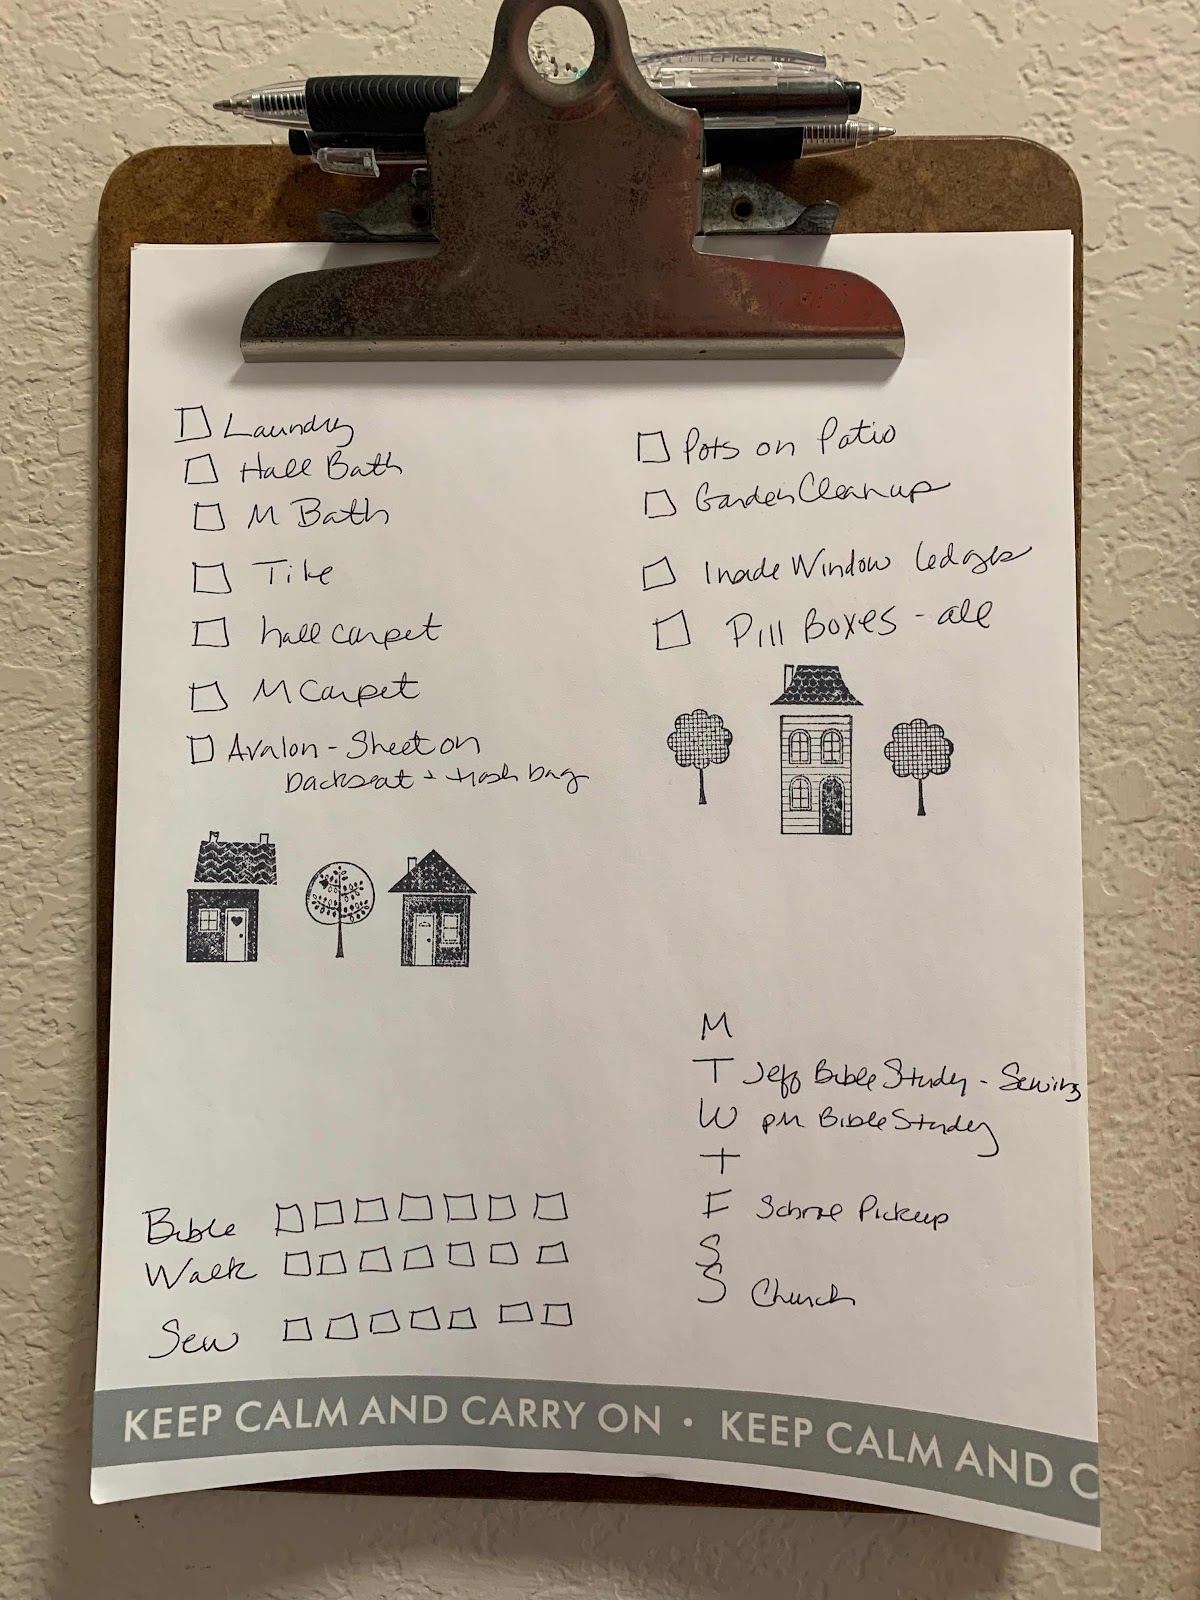 Laundry
Hall Bath
M Bath
Tile
hall carpet
M Carpet
Avalon - Sheet on
backseat + trash bag
Pots on Patio
Garden Cleanup
Inside Window Ledges
Pill Boxes - all
M
T Jeff Bible Study - Sewing
W pm Bible Study
T
F School Pickup
S
S Church
Bible
Walk
Sew
KEEP CALM AND CARRY ON • KEEP CALM AND C